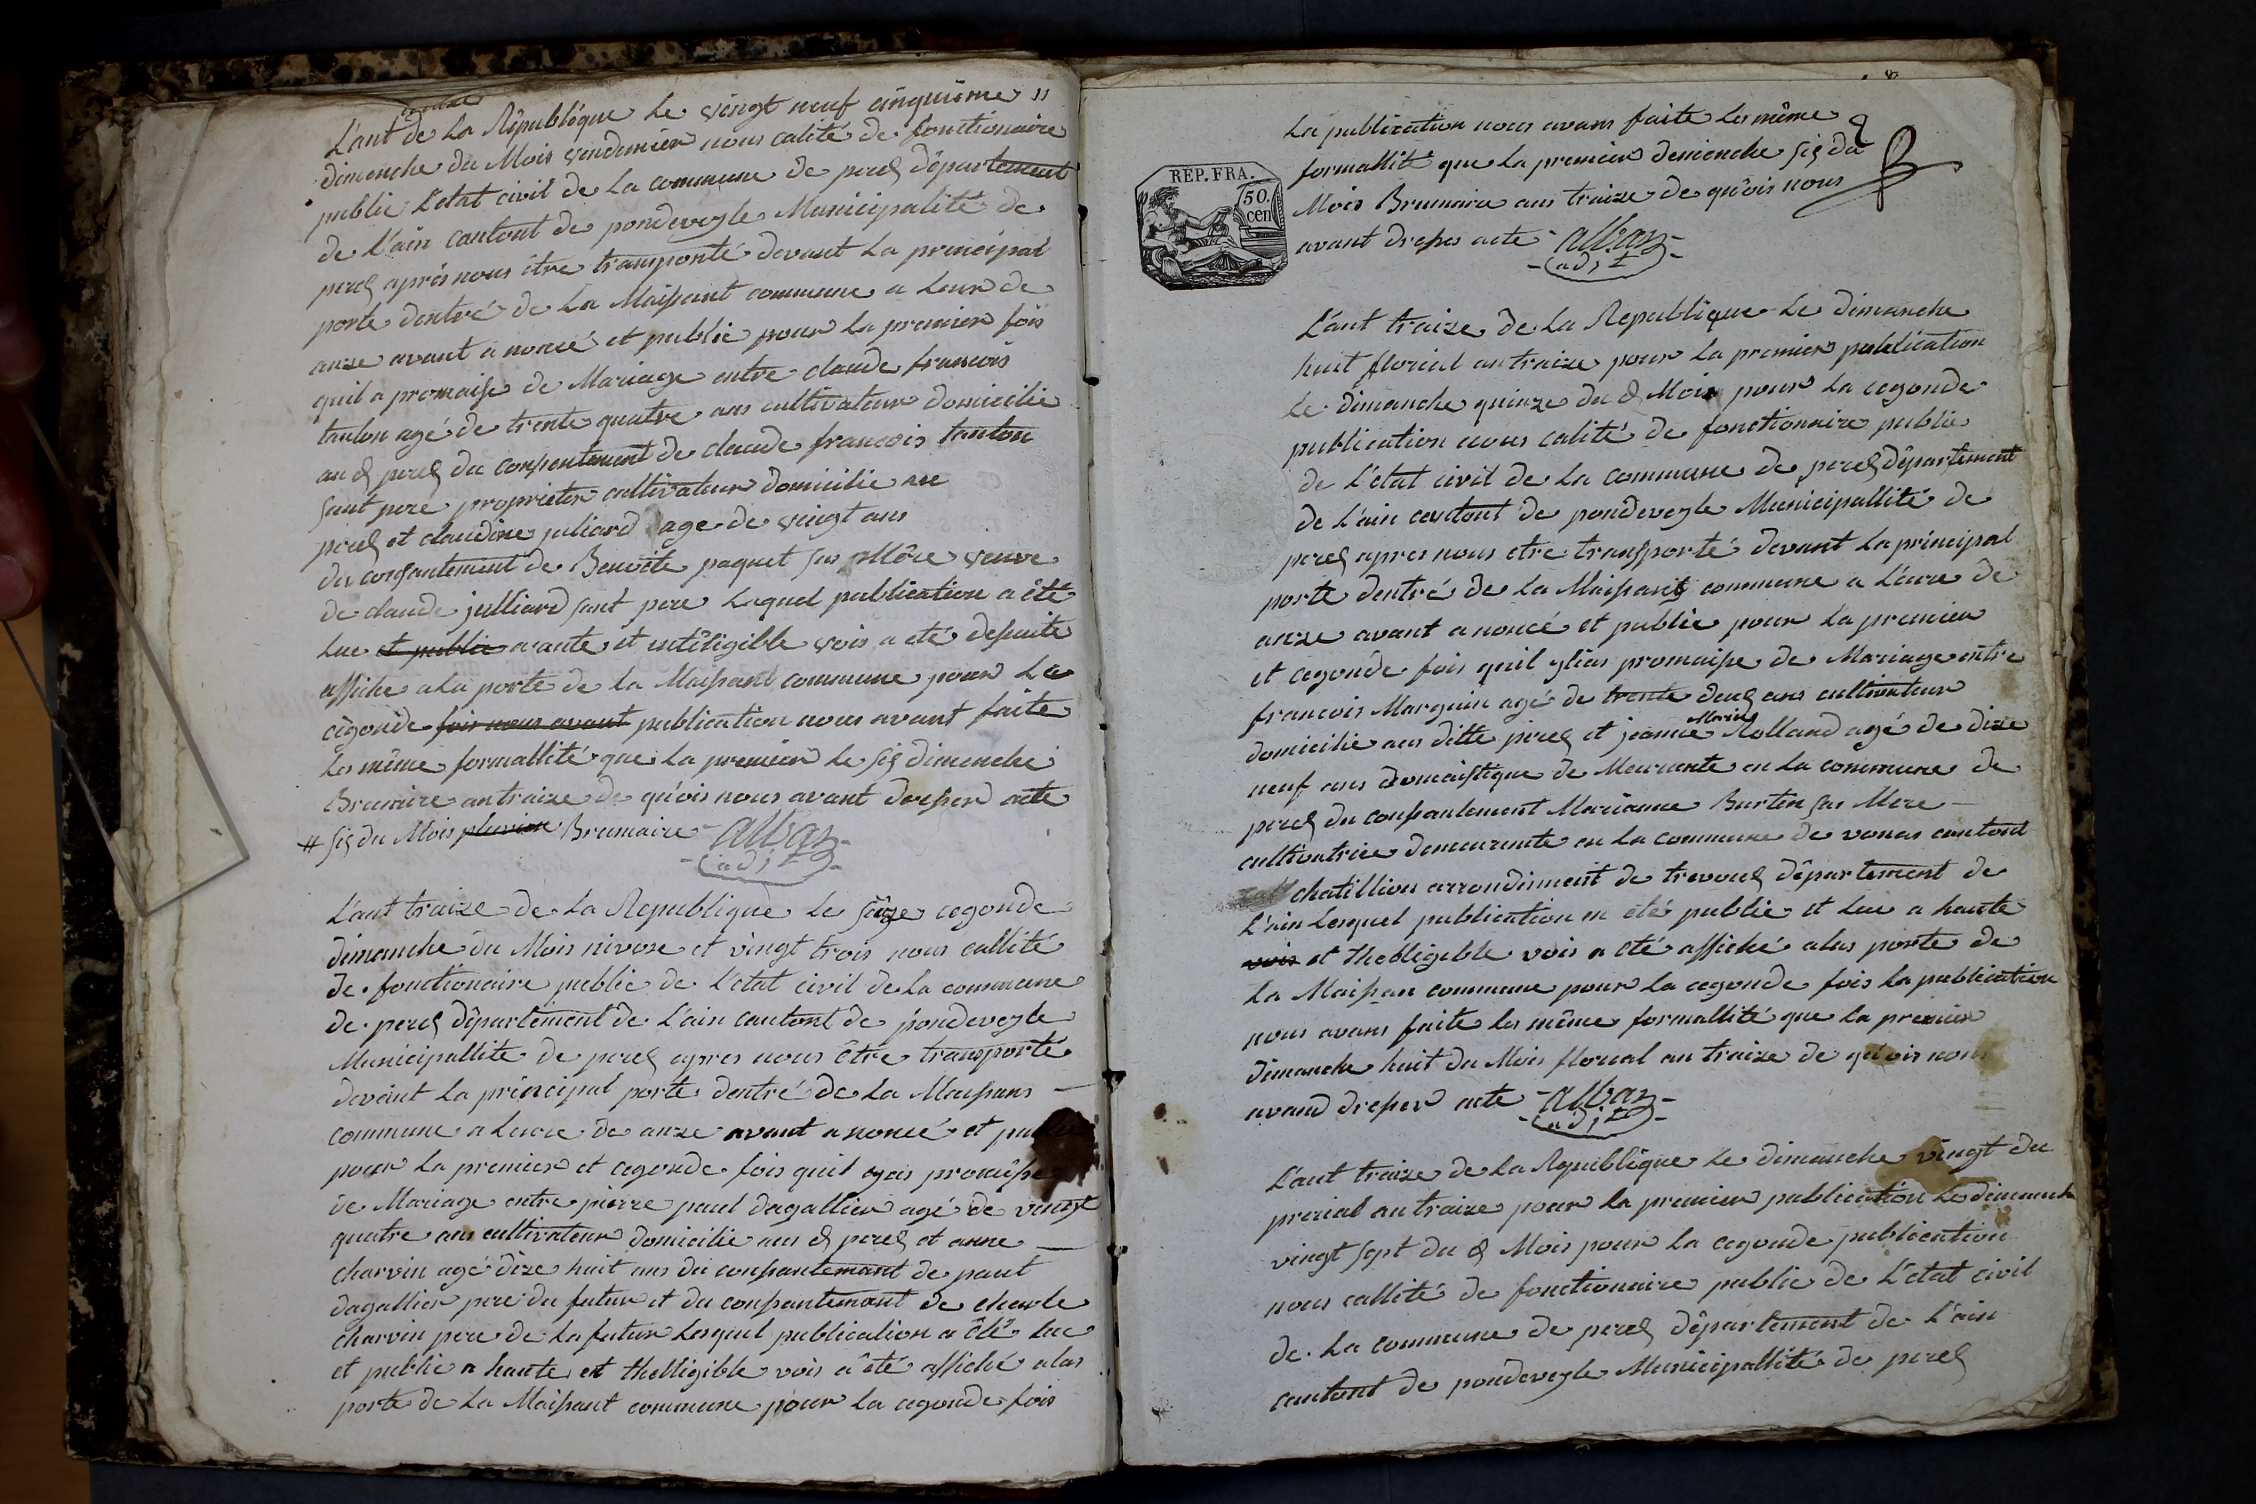 traize
L'ant de La République Le vingt neuf cinquième 11
dimenche du Mois vendemier nous calité de fonctionaire
public L'etat civil de La commune de perex département
de L'ain cantont de pondeveyle Municipalité de
perex après nous être transporté devant La principal
porte dentré de La Maisant commune a Leure de
anze avant anoncé et public pour La premier fois
quil a promaise de Mariage entre claude francois
tanton agé de trente quatre ans cultivateur domicilie
au d perex du consentement de claude francois tanton
sant pere proprieter cultivateur domicilie au
perex et claudine juliard age de vingt ans
du consantement de Benoite paquet sas Mère veuve
de claude julliard sant pere Lequel publication a été
Lue et public aaute et intéligible vois a eté desuite
affiche a La porte de La Maisant commune pour La
cegonde fois nous avant publication nous avant faite
Les même formallité que La premier Le six dimenche
Brumaire an traize de quois nous avant dresser acte
# six du Mois pluviose Brumaire alban
adjt
L'ant traize de La Republique Le seize cegonde
dimanche du Mois nivose et vingt trois nous callité
de fonctionaire public de L'etat civil de La commune
de perex département de L'ain cantont de pondeveyle
Municipallite de perex apres nous être transporté
devant La principal porte dentré de La Maisans
commune a Leure de anze avant anoncé et pu
pour La premier et cegonde fois quil ayas promaise
de Mariage entre pierre paul dagallier agé de vingt
quatre ans cultivateur domicilie aus d perex et anne
charvin agé dize huit ans du consantemant de paul
dagallier pere du futur et du consantemant de charle
charvin pere de La futur Lesquel publication a été Lue
et public a haute et thelligible vois a été affiché alas
porte de La Maisant commune pour La cegonde fois
8
La publication nous avans faite Les même
formallité que La premier demenche six du
Mois Brumaire ans traize de quois nous
avant dreser acte alban
adjt
REP. FRA.
50.
cen
L'ant traize de La Republique Le dimanche
huit florial an traize pour La premier publication
Le dimanche quinze du d Mois pour La cegonde
publication nous calité de fonctionnaire public
de L'état civil de La commune de perex département
de L'ain cantont de pondeveyle Municipallité de
perex apres nous etre transporté devant La principal
porte dentré de La Maisant commune a L'eure de
anze avant anoncé et public pour La premier
et cegonde fois quil ylias promaise de Mariage entre
francois Marguin agé de trente deux ans cultivateur
domicilie aus ditte perex et jeanne Marie Rolland agé de dize
neuf ans domaistique de Meurante en La commune de
perex du consantement Marianne Burtin sas Mere
cultivatrice demeurante en La commune de vonas cantont
chatillion arrondisment de trevoux département de
L'ain Lesquel publication a été public et Lue a haute
vois et thelligible vois a eté affiché alas porte de
La Maisan commune pour La cegonde fois La publication
nous avans faite Les même formallité que La premier
dimanche huit du Mois florial an traize de quois nous
avand dreser acte alban
adjt
L'ant traize de La Republique Le dimanche vingt du
prerial an traize pour La premier publication Le dimanch
vingt sept du d Mois pour La cegonde publication
nous callité de fonctionaire public de L'état civil
de La commune de perex département de L'ain
cantont de pondeveyle Municipallité de perex